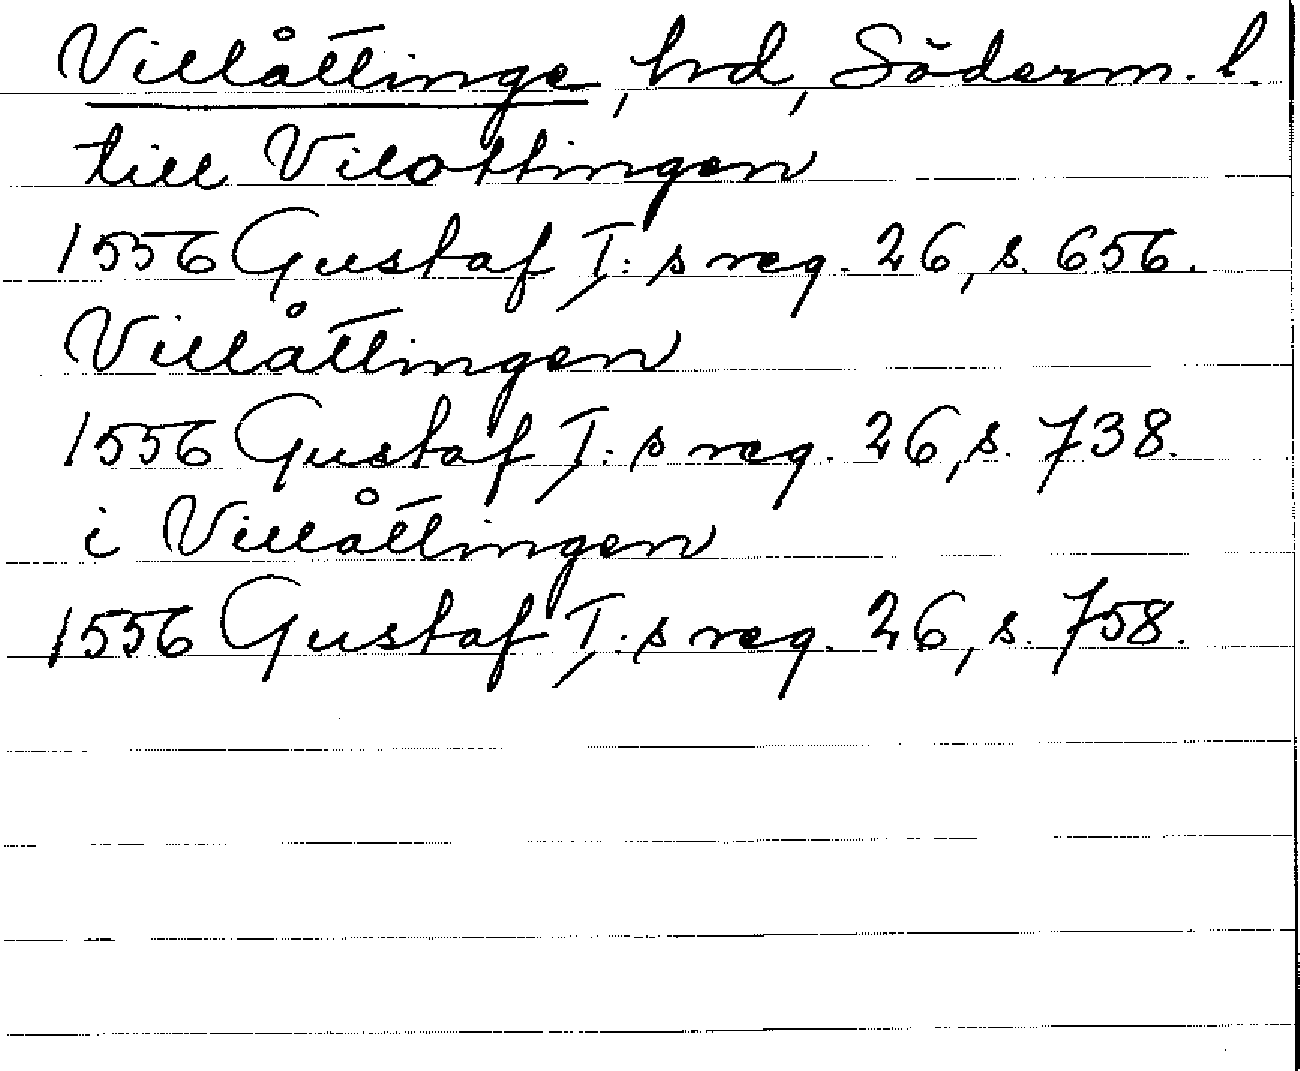 Villåttinge, hrd, Söderm. l.
till Vilottingen
1556 Gustaf I:s reg. 26, s. 656.
Villåttingen
1556 Gustaf I:s reg. 26, s. 738.
i Villåttingen
1556 Gustaf I:s reg. 26, s. 758.